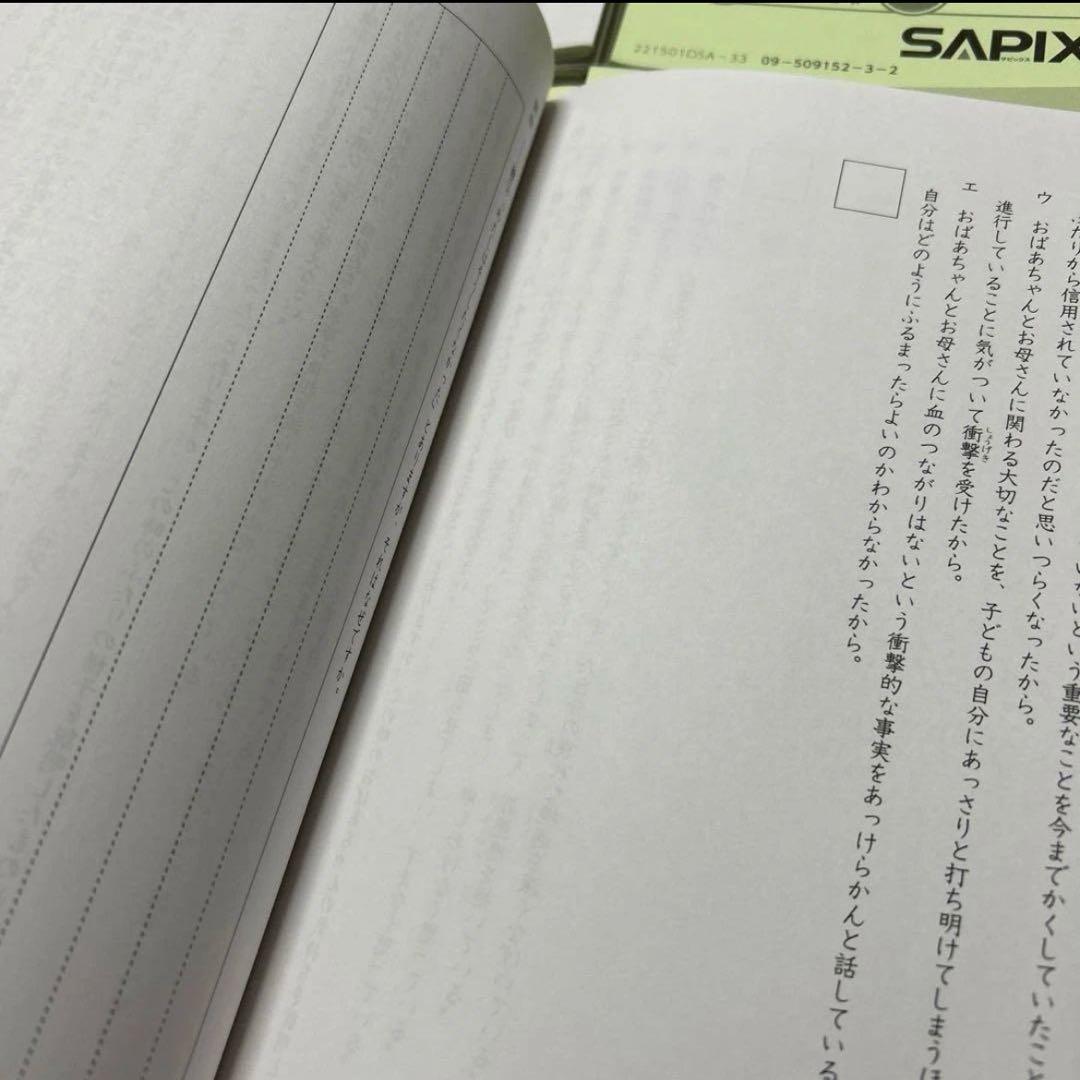 SAPIX
サピックス
221501D5A-33 09-509152-3-2
いないという重要なことを今までかくしていたこと
たりから信用されていなかったのだと思いつらくなったから。
ウ おばあちゃんとお母さんに関わる大切なことを、子どもの自分にあっさりと打ち明けてしまうほ
進行していることに気がついて衝撃を受けたから。
しょうげき
エ おばあちゃんとお母さんに血のつながりはないという衝撃的な事実をあっけらかんと話している
自分はどのようにふるまったらよいのかわからなかったから。
とありますが、それはなぜですか。